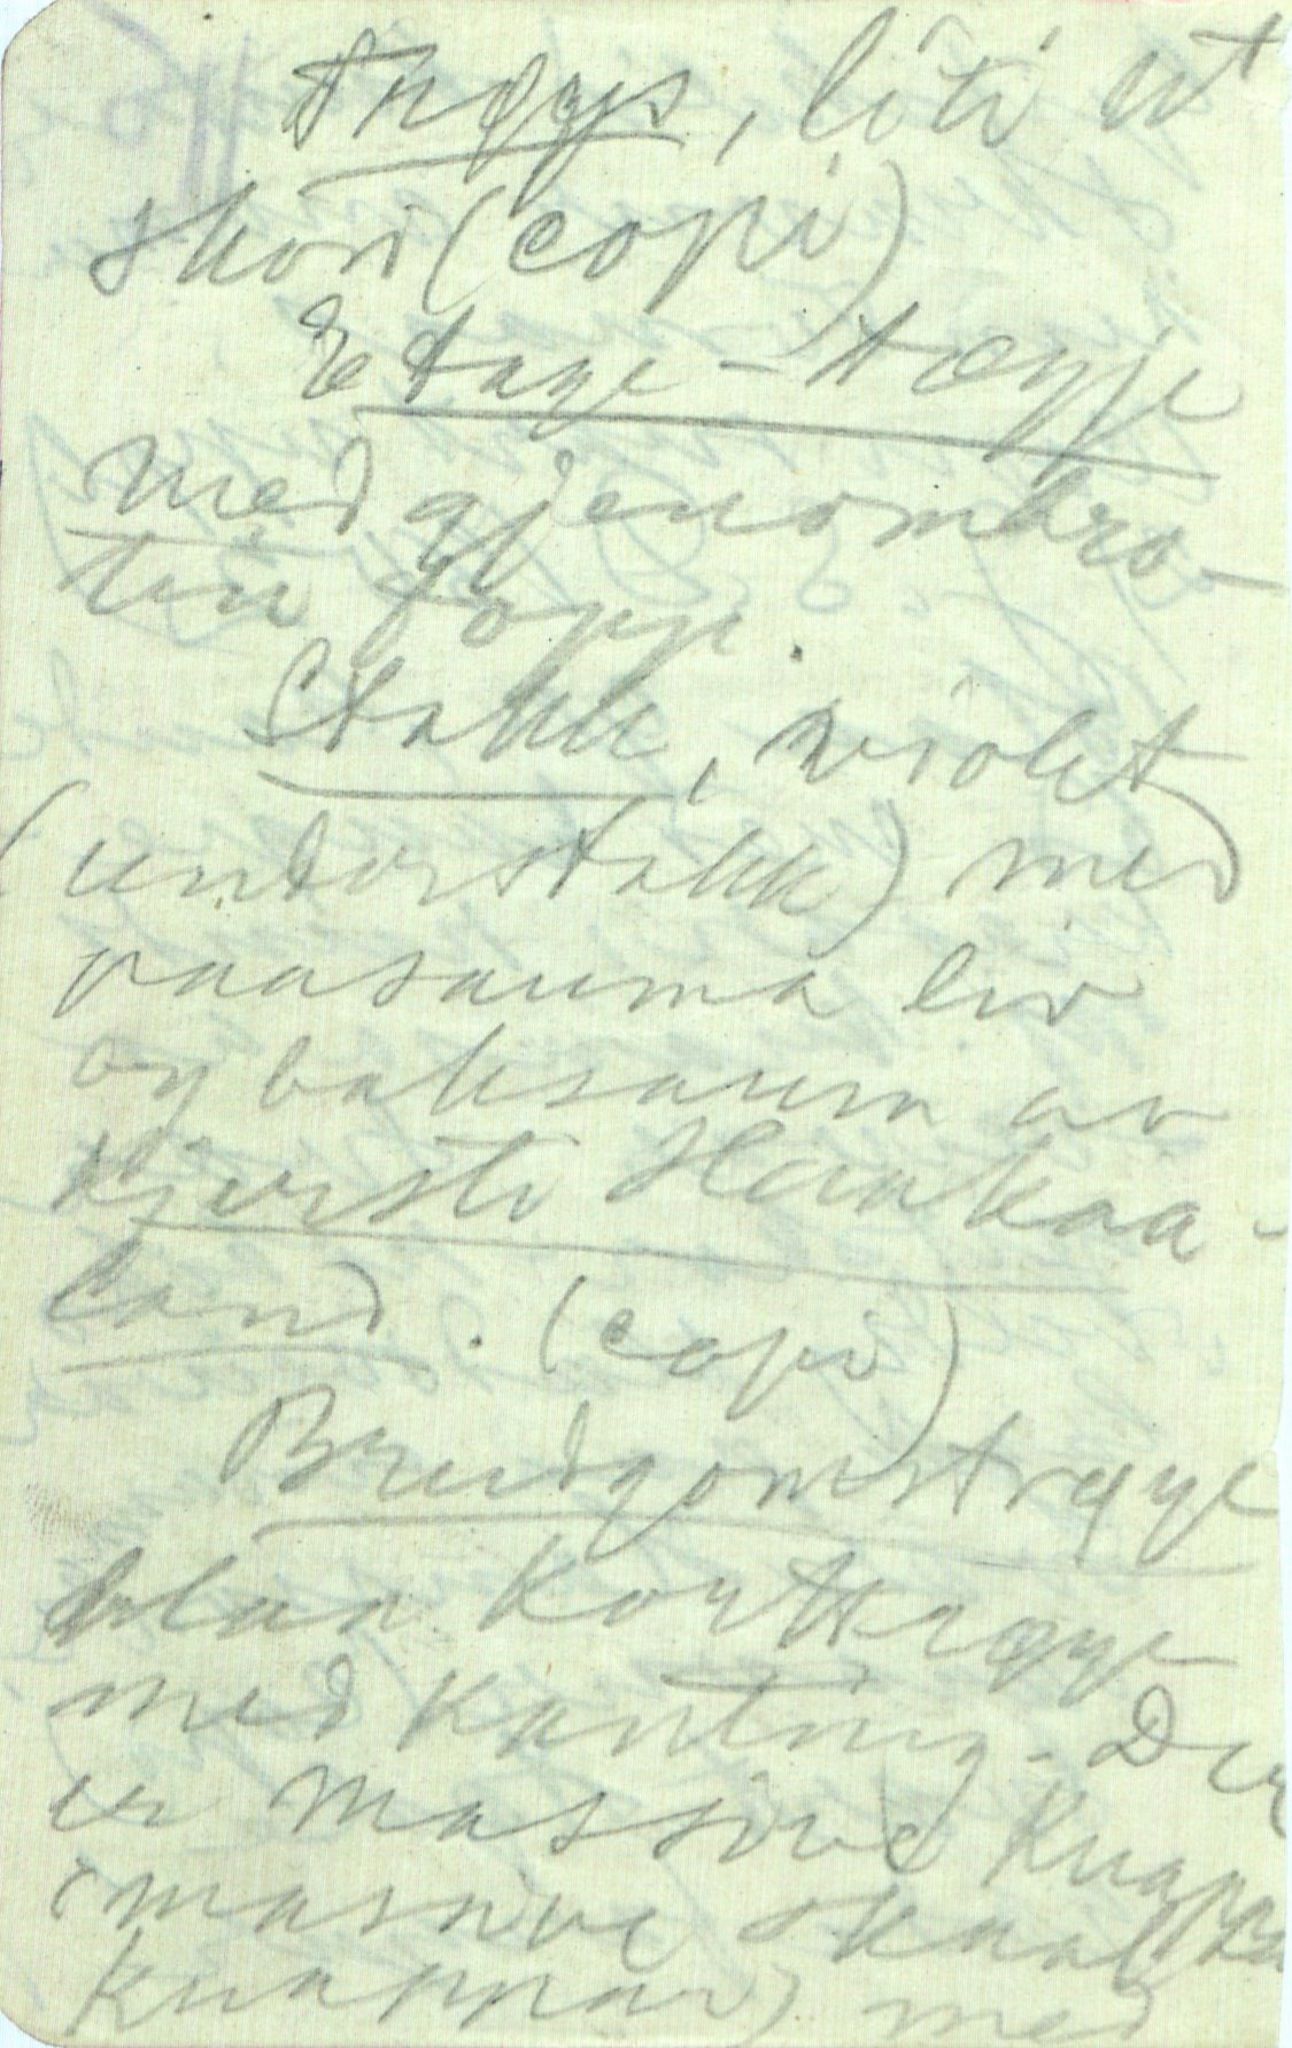 Snøggs, liti et
skori (copi)
Etage-tægje
med gjenombro-
ten topp.
Stakk, violet
(understakk) med
paasauma liv
og baksaum av
Kjersti Haukaa-
land. (copi)
Brudgomstrøye
blaa Korttrøye
med kanting. Der
er massive Knappa
(massive skaal
knappar) med